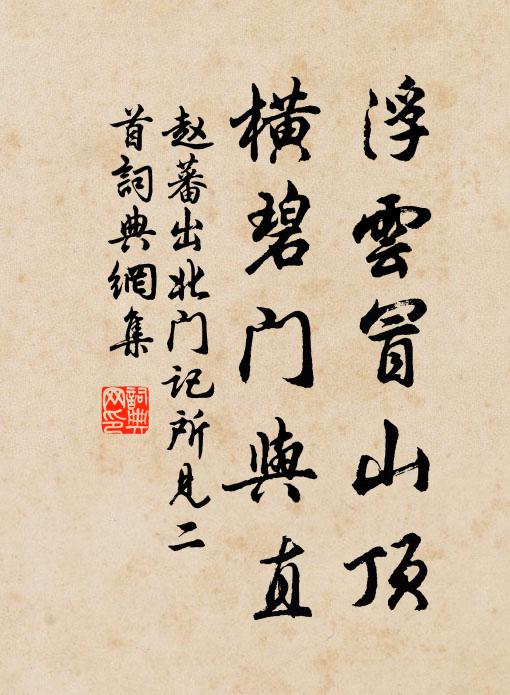 浮雲冒山頂
橫碧門與直
赵蕃出北门记所见二
首詞典網集
詞典
网印